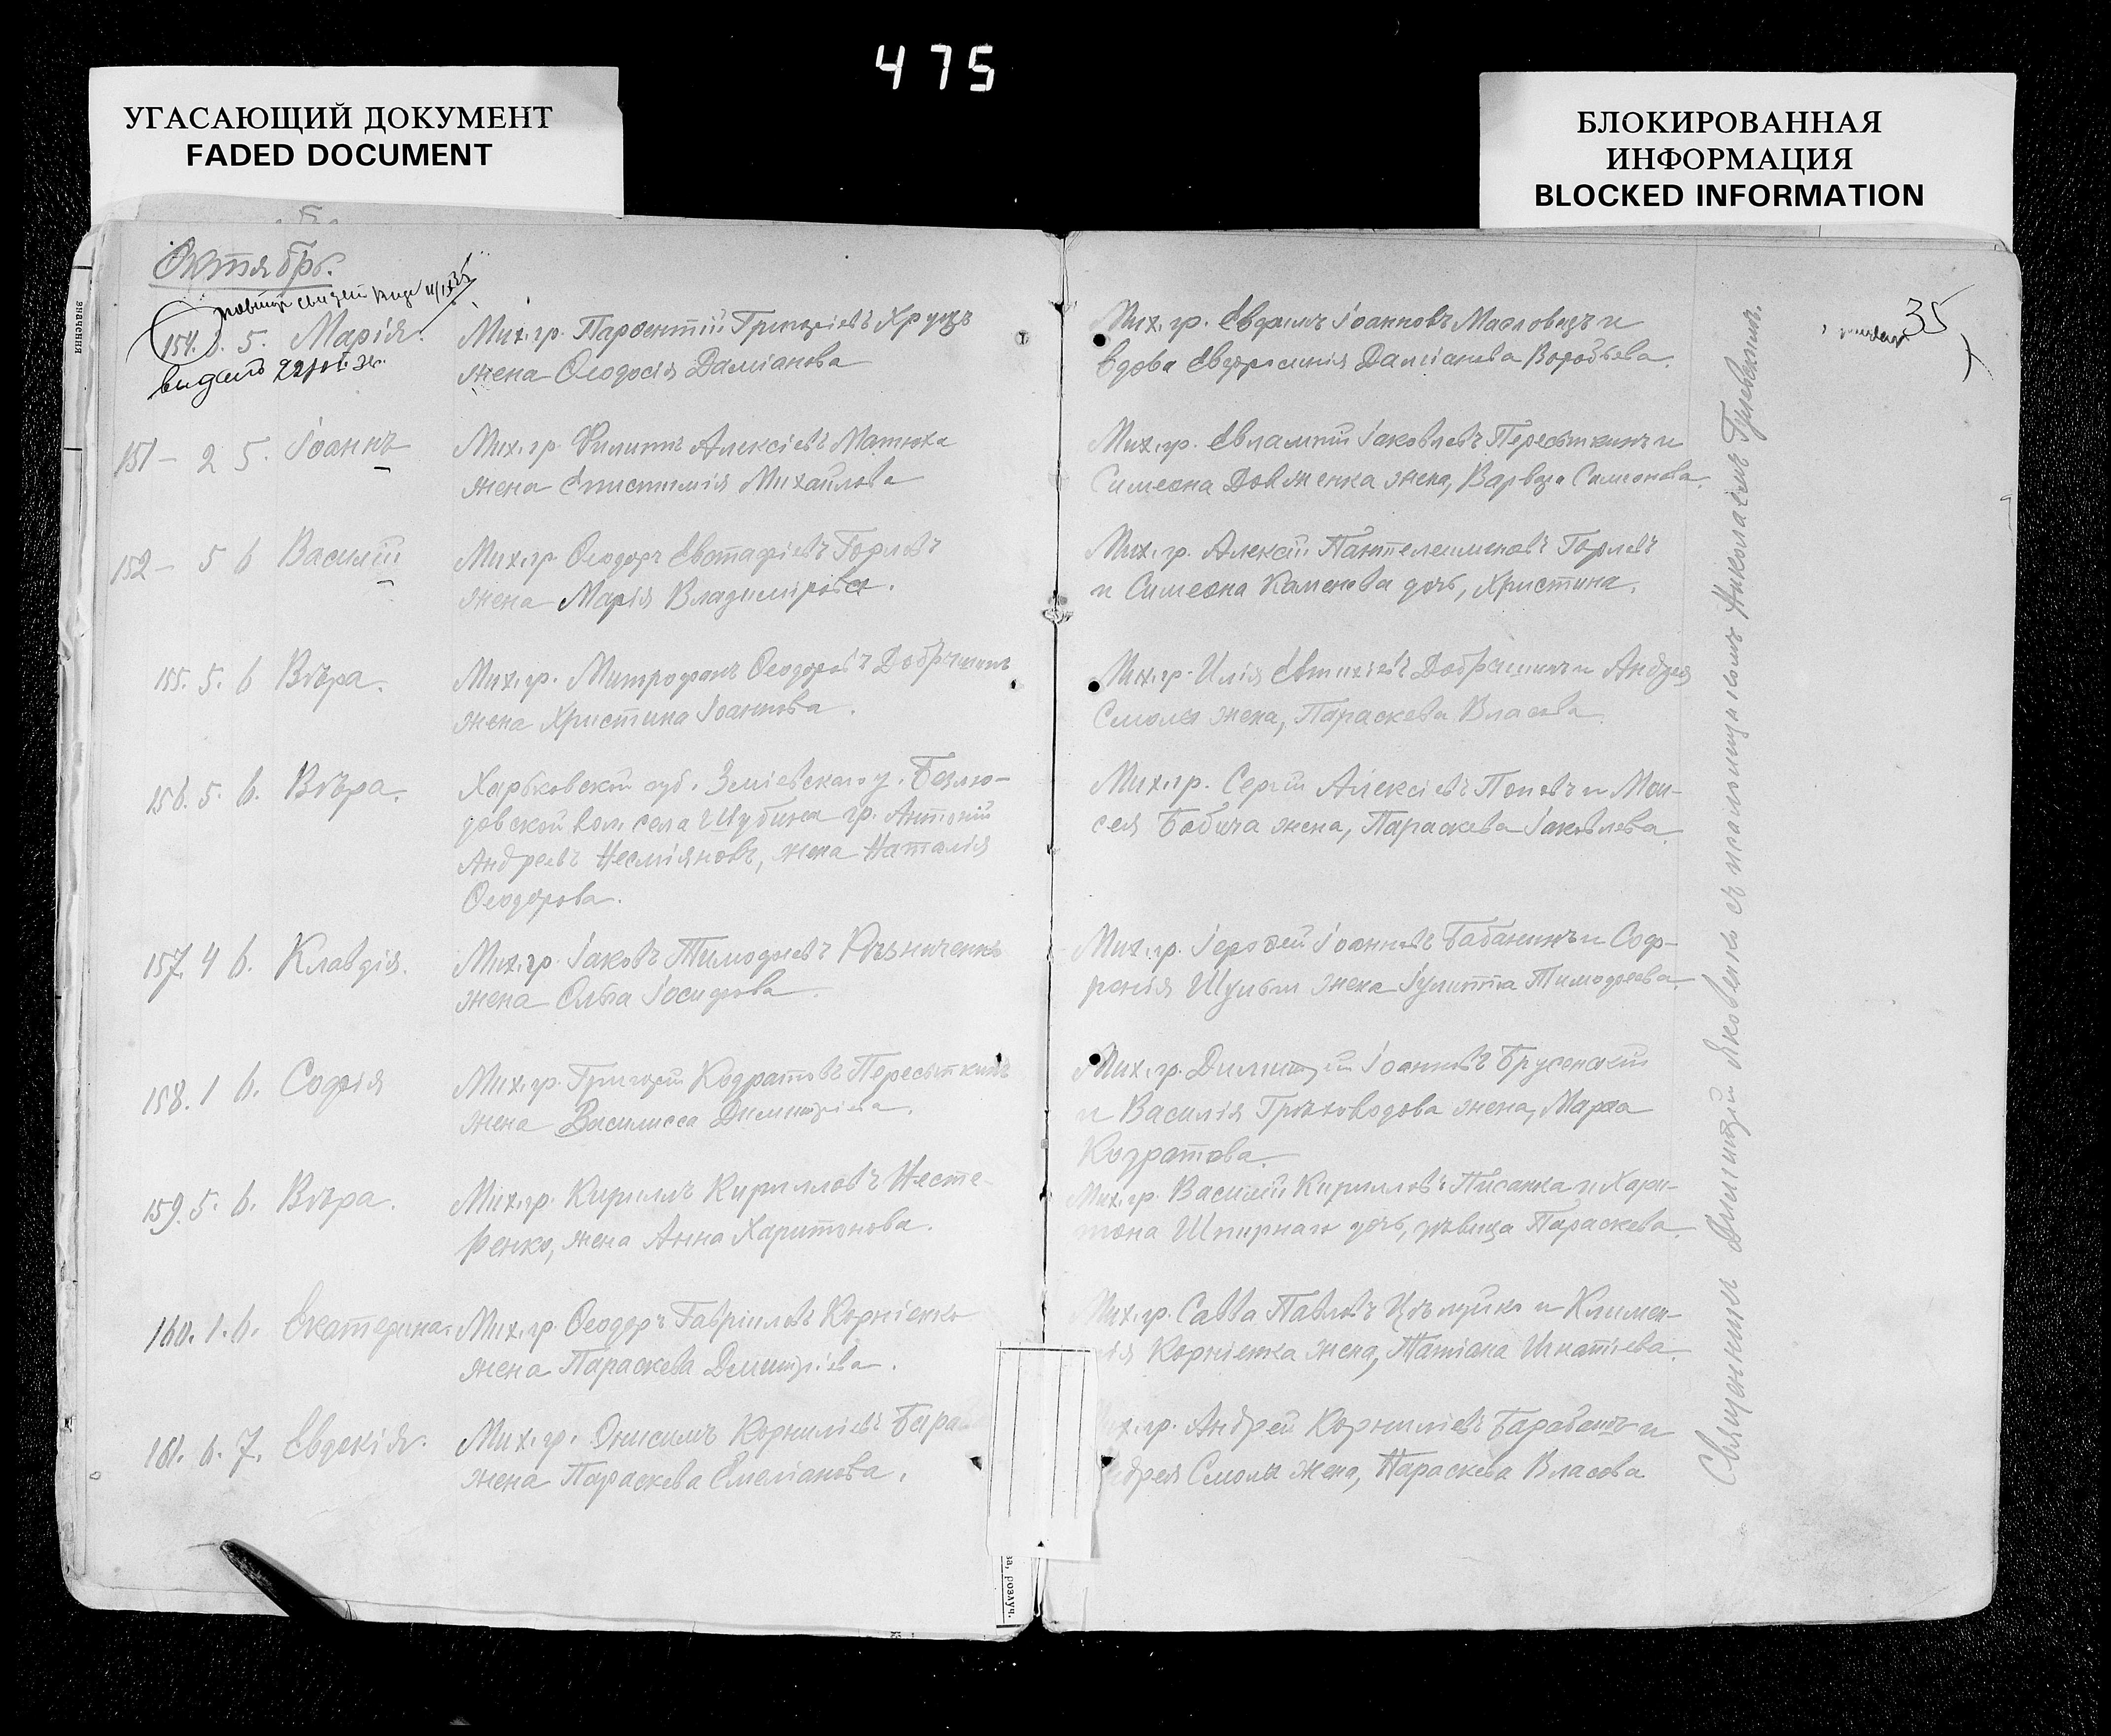 475
УГАСАЮЩИЙ ДОКУМЕНТ
FADED DOCUMENT
БЛОКИРОВАННАЯ
ИНФОРМАЦИЯ
BLOCKED INFORMATION
значення
Октябрь.
35
154. 5. Марія.
Мих. гр. Парѳентій Григоріевъ
жена Ѳеодосія Даміанова
Мих. гр. Евфимъ Іоанновъ и
вдова Евфросинія Даміанова Воробьева.
151 – 2 5. Іоаннъ
Мих. гр. Филиппъ Алексіевъ Матюха
жена Епистимія Михаилова
Мих. гр. Евлампій Іаковлевъ Пересыпкинъ и
Симеона Довженка жена, Варвара Симеонова.
152 – 5 6 Василій
Мих. гр. Ѳеодоръ Евстафіевъ Горловъ
жена Марія Владимірова.
Мих. гр. Алексій Пантелеимоновъ Горловъ
и Симеона дочь, Христина.
155. 5. 6 Вѣра.
Мих. гр. Митрофанъ Ѳеодоровъ
жена Христина Іоаннова.
Мих. гр. Илія Евтихіевъ и Андрея
Смолы жена, Параскева Власова.
156. 5. 6. Вѣра.
Харьковской губ. Зміевскаго у. Безлю-
довской вол. села Шубина гр. Антоній
Андреевъ Несміяновъ, жена Наталія
Ѳеодорова.
Мих. гр. Сергій Алексіевъ Поповъ и Мои-
сея Бабича жена, Параскева Іаковлева.
157. 4 6. Клавдія.
Мих. гр. Іаковъ Тимофеевъ Рѣзниченко
жена Ольга Іосифова.
Мих. гр. Іероѳей Іоанновъ Бабанинъ и Соф-
ронія Шульги жена Іулитта Тимофеева.
158. 1 6. Софія
Мих. гр. Григорій Кодратовъ Пересыпкинъ
жена Василисса Димитріева.
Мих. гр. Димитрій Іоанновъ Брусенскій
и Василія Грѣховодова жена, Марѳа
Кодратова.
159. 5. 6. Вѣра.
Мих. гр. Кириллъ Кирилловъ Несте-
ренко, жена Анна Харитонова.
Мих. гр. Василій Кирилловъ Писанка и Хари-
тона дочь, дѣвица Параскева.
160. 1. 6. Екатерина.
Мих. гр. Ѳеодоръ Гавріиловъ Корніенко
жена Параскева Димитріева.
Мих. гр. Савва Павловъ и Климен-
тія Корніенка жена, Татіана Игнатіева.
161. 6. 7. Евдокія.
Мих. гр. Онисимъ Корниліевъ Бараб
жена Параскева Емеліанова.
Мих. гр. Андрей Корниліевъ Барабашъ и
Андрея Смолы жена, Параскева Власова
Священникъ Димитрій Яковенко съ псаломщикомъ Николаемъ